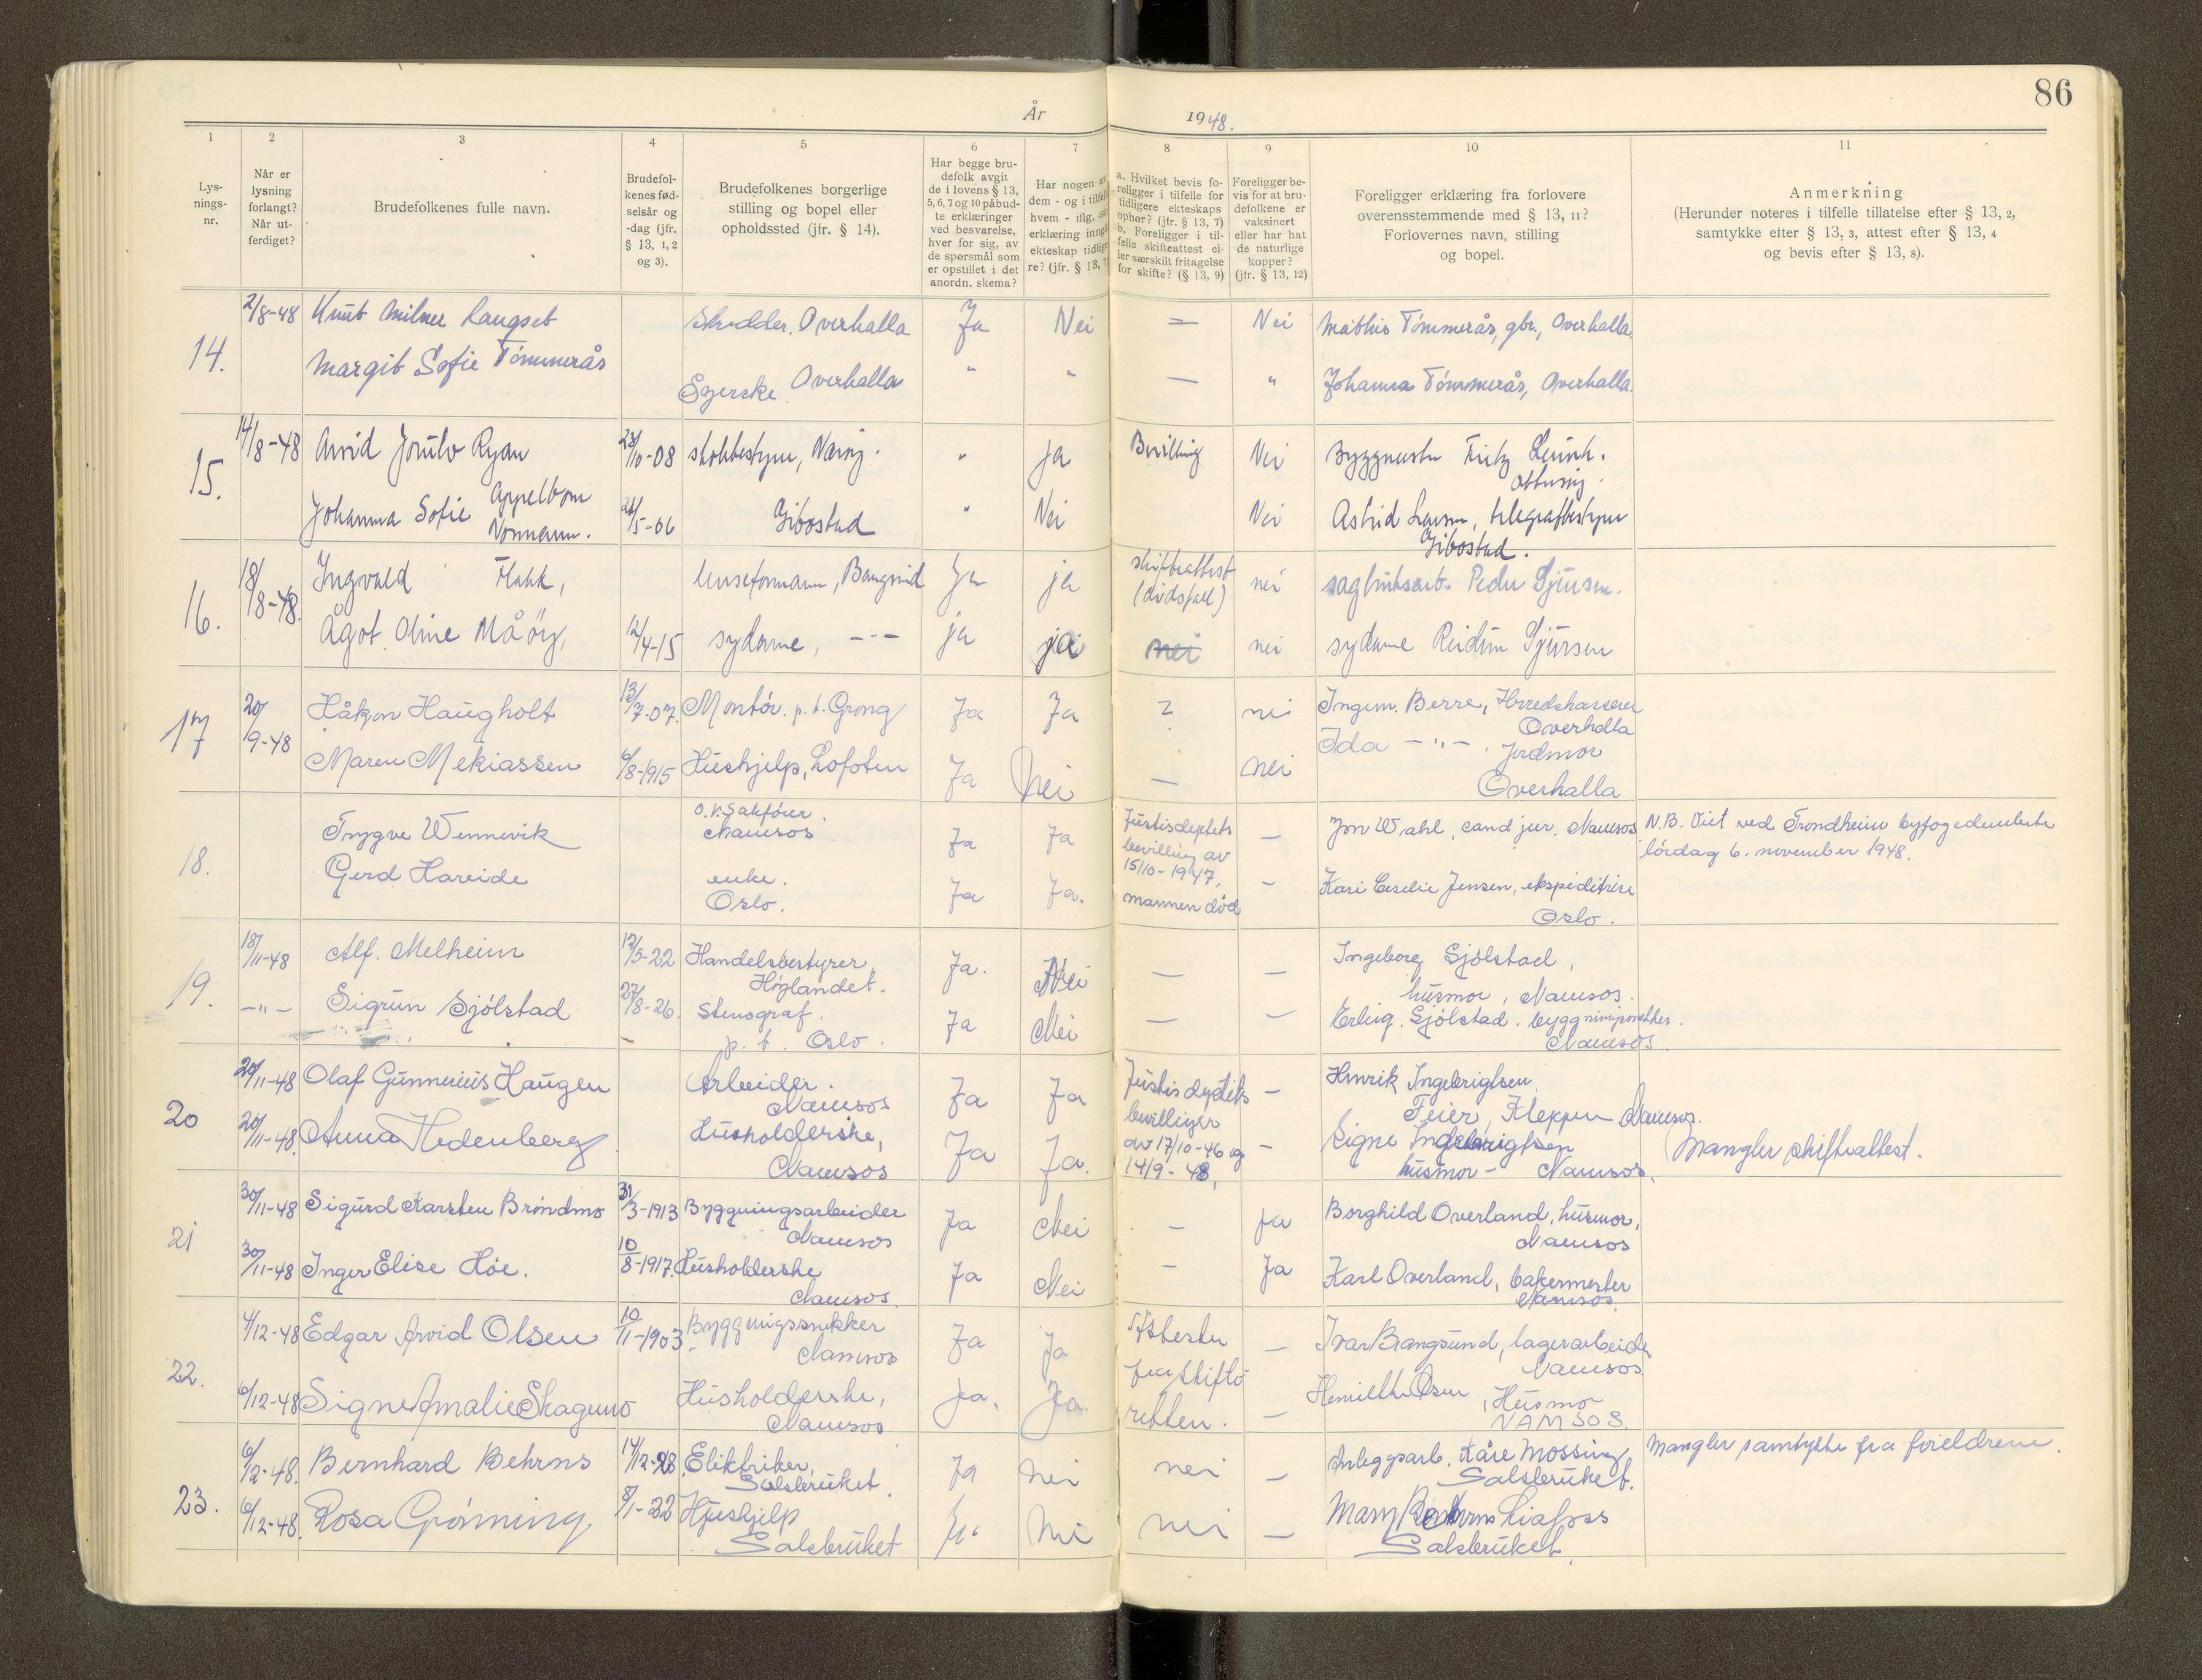 86
År 1948.
1
2
3
4
5
6
7
8
9
10
11
Lys-
nings-
nr.
Når er
lysning
forlangt?
Når ut-
ferdiget?
Brudefolkenes fulle navn.
Brudefol-
kenes fød-
selsår og
-dag (jfr.
§ 13, 1, 2
og 3).
Brudefolkenes borgerlige
stilling og bopel eller
opholdssted (jfr. § 14).
Har begge bru-
defolk avgit
de i lovens § 13,
5, 6, 7 og 10 påbud-
te erklæringer
ved besvarelse,
hver for sig, av
de spørsmål som
er opstillet i det
anordn. skema?
Har nogen av
dem - og i tilfelle
hvem - iflg.
erklæring inngått
ekteskap tidlige-
re? (jfr. § 13, 7)
a. Hvilket bevis fo-
religger i tilfelle for
tidligere ekteskaps
ophør? (jfr. § 13, 7)
b. Foreligger i til-
felle skifteattest el-
ler særskilt fritagelse
for skifte? (§ 13, 9)
Foreligger be-
vis for at bru-
defolkene er
vaksinert
eller har hat
de naturlige
kopper?
(jfr. § 13, 12)
Foreligger erklæring fra forlovere
overensstemmende med § 13, 11?
Forlovernes navn, stilling
og bopel.
Anmerkning
(Herunder noteres i tilfelle tillatelse efter § 13, 2,
samtykke efter § 13, 3, attest efter § 13, 4
og bevis efter § 13, 8).
14.
2/8-48 Knut Milner Laugset Skredder. Overhalla Ja Nei = Nei Mathis Tömmerås, gbr., Overhalla.
Margit Sofie Tömmerås Syerske. Overhalla " " — " Johanna Tömmerås, Overhalla.
15.
14/8-48 Arvid Jorulv Ryan 28/10-08 " Ja Bevilling Nei Byggmester Fritz
Johanna Sofie Appelbom
Normann. 5-06 Gibostad " Nei Nei Astrid Larsen, telegrafbestyrer
Gibostad.
16.
18/8-48. Ingvald Flakk, lenseformann, Bangsund Ja ja skifteattest
(dødsfall) nei sagbruksarb. Peder Sjursen.
Ågot Oline Måöy, 12/4-15 sydame, --- ja nei nei sydame Reidun Sjursen
17
20/9-48 Håkon Haugholt 13/7-07. Montör. p.t. Grong Ja Ja ? nei Ingem. Berre, Herredskasserer
Overhalla
Maren Mekiassen 6/8-1915 Hushjelp, Lofoten Ja Nei — nei Ida —"— . Jordmor
Overhalla
18.
Trygve Wennevik O.r. Sakförer.
Namsos Ja Ja Justisdeptets
bevilling av
15/10-1947, — Jon Wahl, cand jur. Namsos N.B. Viet ved Trondheim byfogedembete
lördag 6. november 1948.
Gerd Hareide enke.
Oslo. Ja Ja. mannen död - Kari Cecelie Jensen, ekspeditrise
Oslo.
19.
18/11-48 Alf. Melheim 12/5-22 Handelsbestyrer,
Höylandet. Ja. Nei — — Ingeborg Sjölstad,
husmor, Namsos.
—"— Sigrun Sjölstad 27/8-26. Stenograf.
p.t. Oslo. Ja Nei — — Erling. Sjölstad.
Namsos.
20
20/11-48 Olaf Gunnerius Haugen Arbeider.
Namsos Ja Ja Justisdeptets
bevillinger
av 17/10-46 og
14/9-48, — Henrik Ingebrigtsen
Feier, Kleppen Namsos.
20/11-48. Anna Hedenberg Husholderske,
Namsos Ja Ja. - Signe Ingebrigtsen
husmor - Namsos. Mangler skifteattest.
21
30/11-48 Sigurd Karsten Bröndmo 31/3-1913 Bygguingsarbeider
Namsos Ja Nei - ja Borghild Overland, husmor,
Namsos
30/11-48 Inger Elise Höe. 10/8-1917. Husholderske
Namsos. Ja Nei - Ja Karl Overland, bakermester
Namsos.
22.
4/12-48 Edgar Arvid Olsen 10/11-1903 Bygguingssnekker
Namsos Ja Ja Attester
fra skifte
retten. — Ivar Bangsund, lagerarbeider
Namsos
6/12-48 Signe Amalie Skagumo Husholderske,
Namsos Ja. Ja. — Olsen, Husmo
NAMSOS.
23.
6/12-48. Bernhard Behrns 14/12-28 Elektriker,
Salsbruket. Ja nei nei — Anleggsarb. Kåre Mossing
Salsbruket. Mangler samtykke fra foreldrene.
6/12-48. Rosa Grönning 8/1-32 Hushjelp
Salsbruket Ja Nei nei — Mary
Salsbruket.